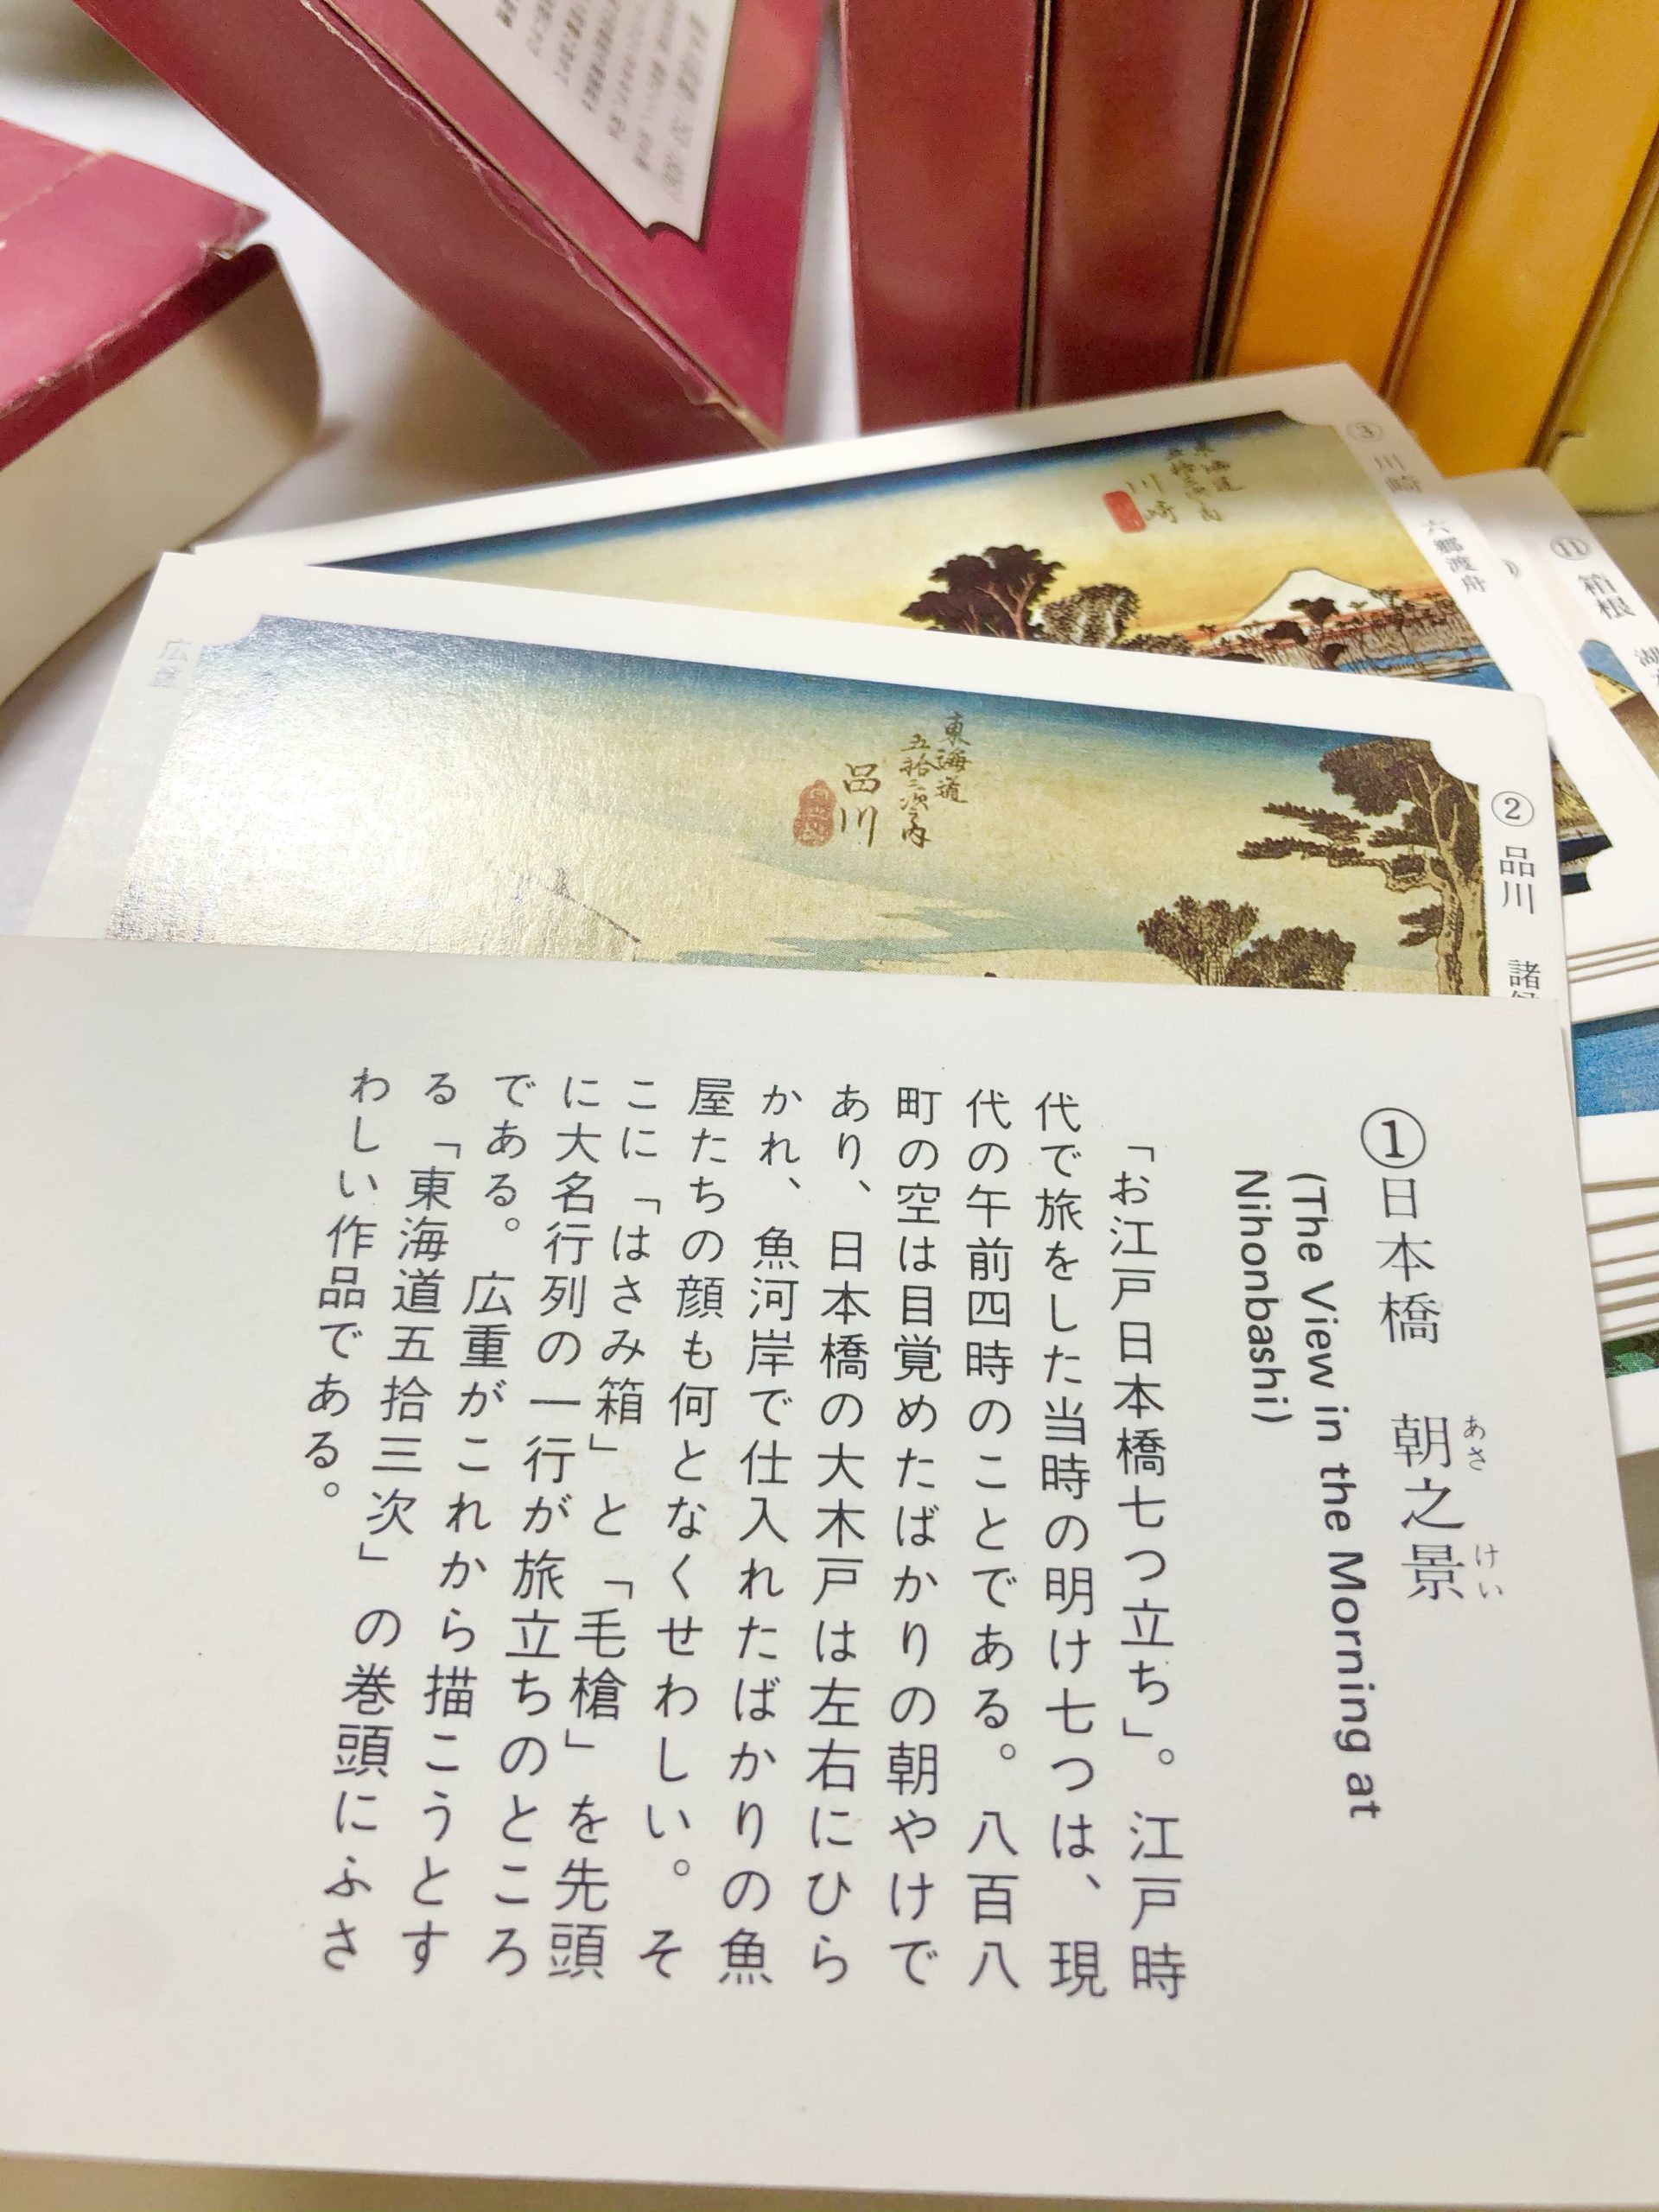 ①日本橋　朝之景
あさ　けい
(The View in the Morning at
Nihonbashi)
「お江戸日本橋七つ立ち」。江戸時
代で旅をした当時の明け七つは、現
代の午前四時のことである。八百八
町の空は目覚めたばかりの朝やけで
あり、日本橋の大木戸は左右にひら
かれ、魚河岸で仕入れたばかりの魚
屋たちの顔も何となくせわしい。そ
こに「はさみ箱」と「毛槍」を先頭
に大名行列の一行が旅立ちのところ
である。広重がこれから描こうとす
る「東海道五拾三次」の巻頭にふさ
わしい作品である。
② 品川　諸
東海道
五拾三次之内
品川
広重
③ 川崎　六郷渡舟
川崎
⑪ 箱根　湖